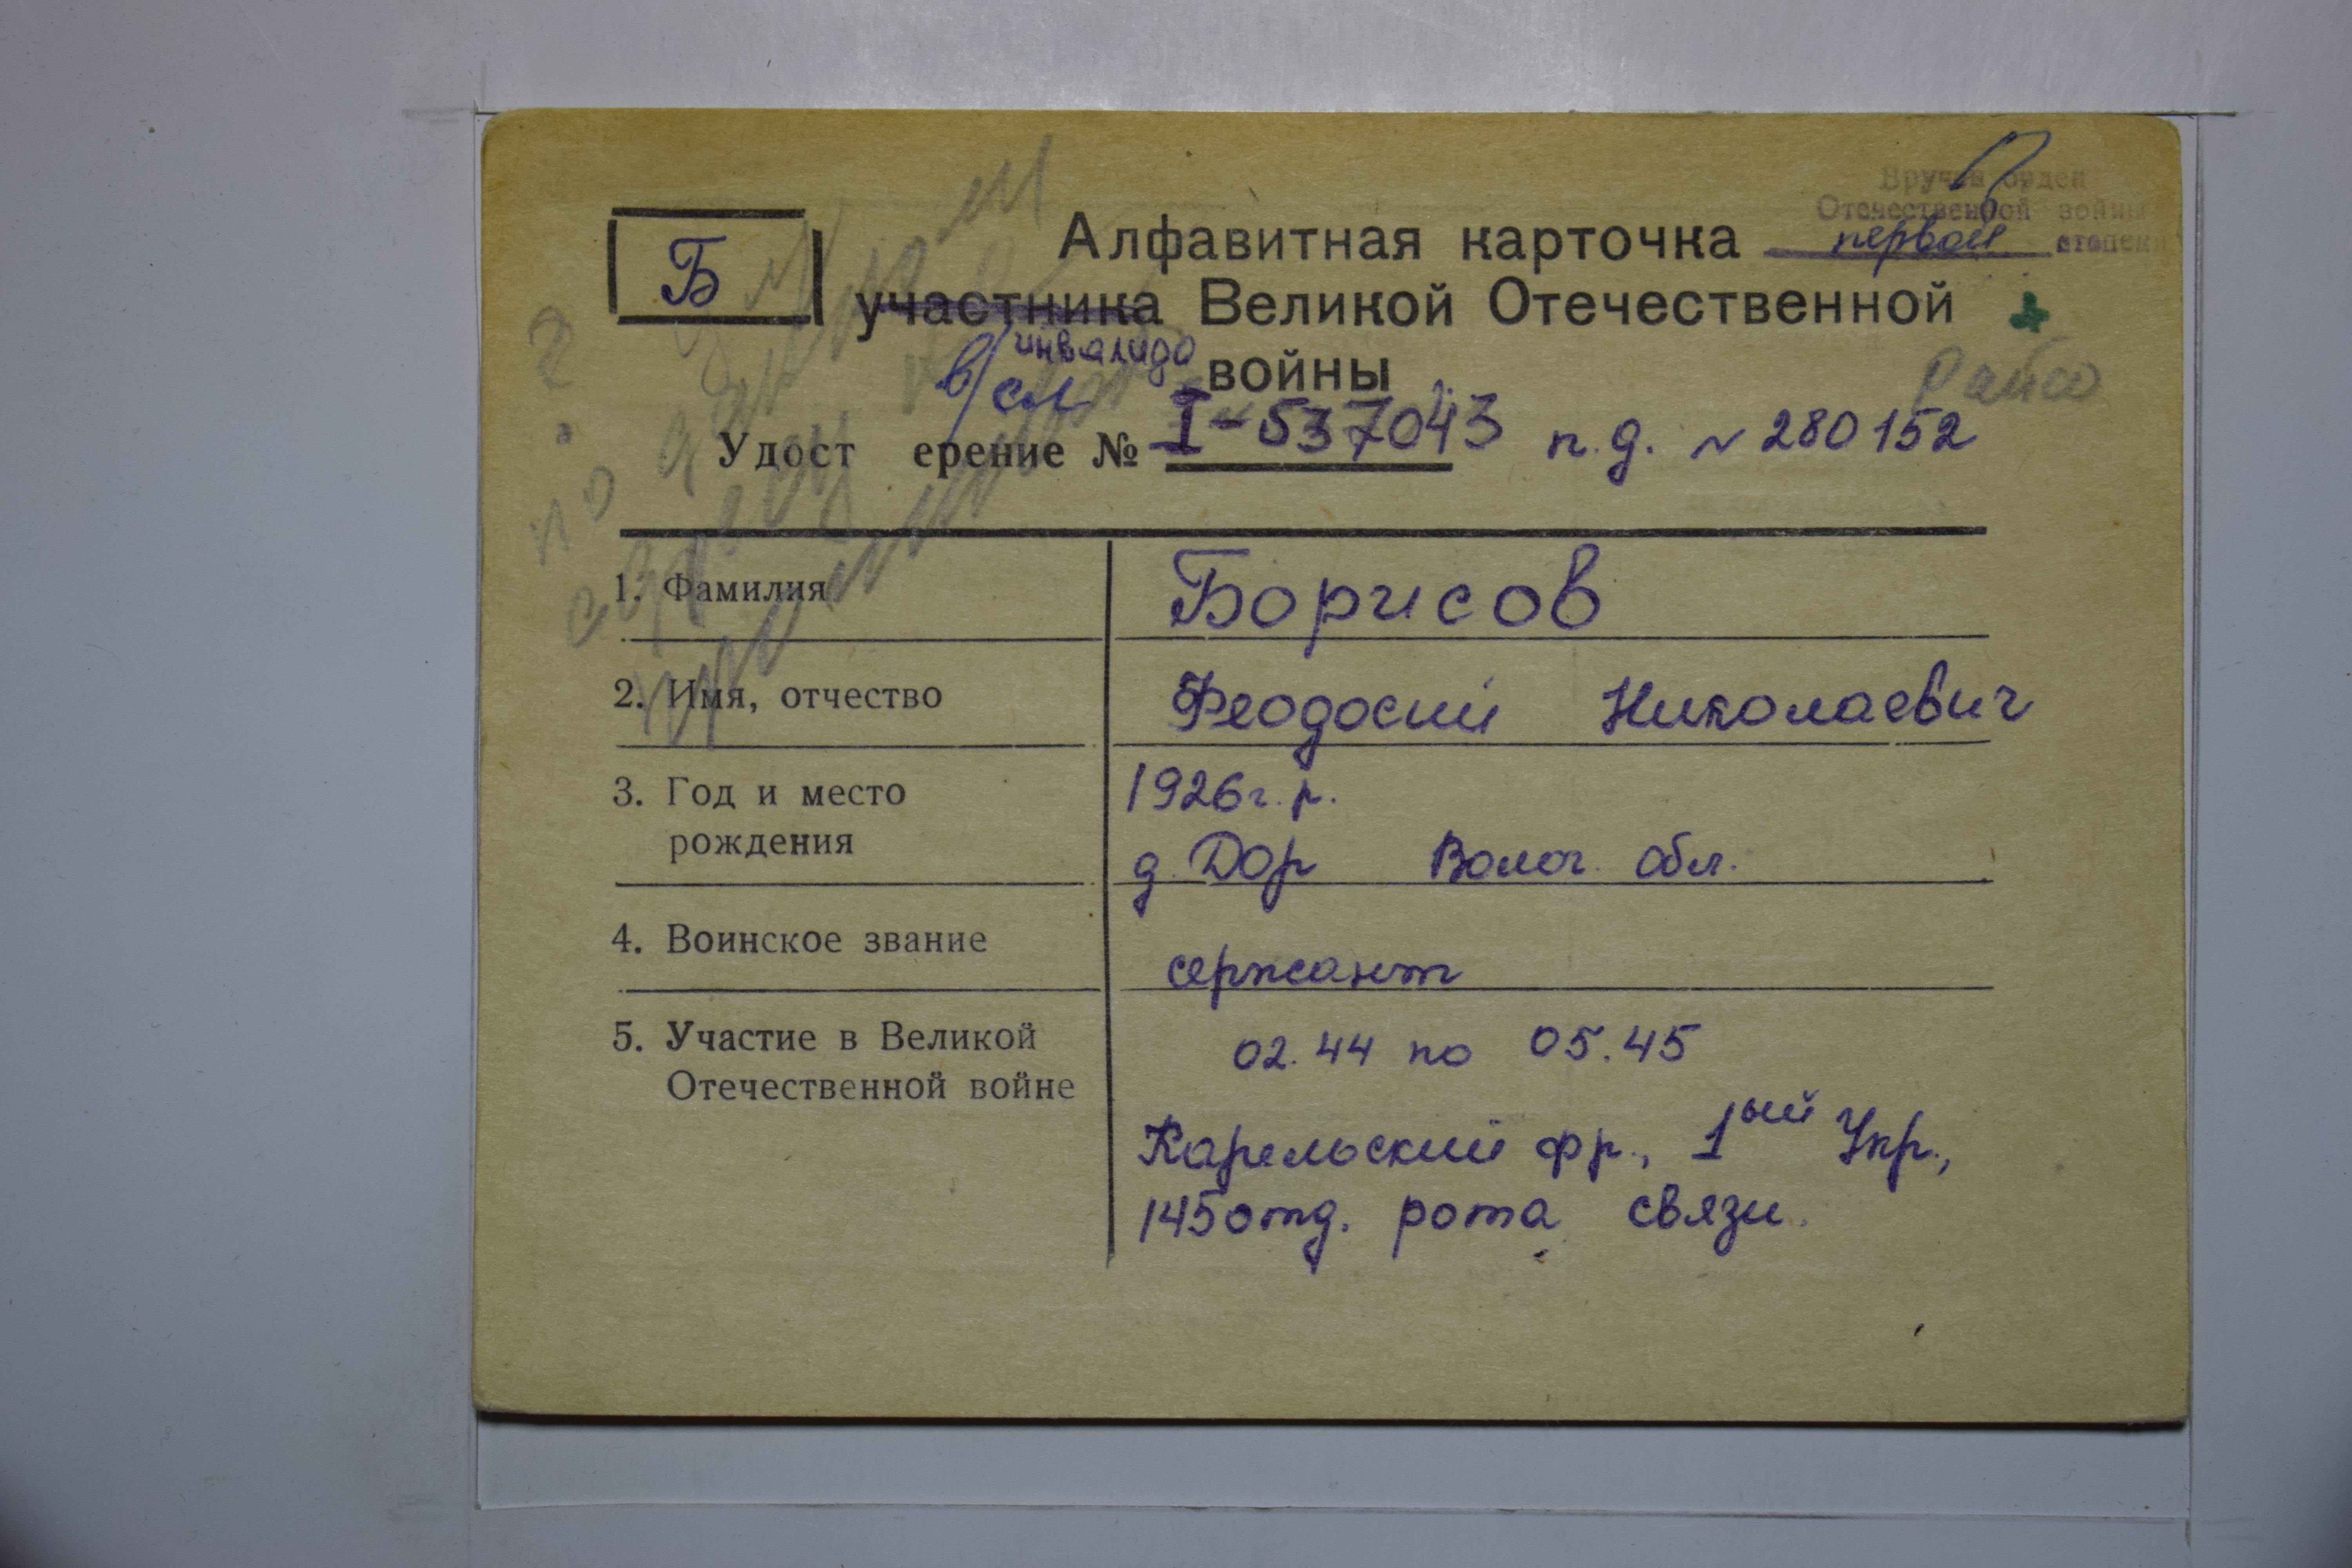 Вручен орден
Отечественной войны
первой степени
Б
Алфавитная карточка
участника Великой Отечественной
инвалида
войны
в/сл
Райсо
Удост ерение № I-537043 п.д. N 280152
1. Фамилия
Борисов
2. Имя, отчество
Феодосий Николаевич
3. Год и место
рождения
1926 г.р.
д. Дор Волог. обл.
4. Воинское звание
сержант
5. Участие в Великой
Отечественной войне
02.44 по 05.45
Карельский фр., 1ый Укр.,
145 отд. рота связи.